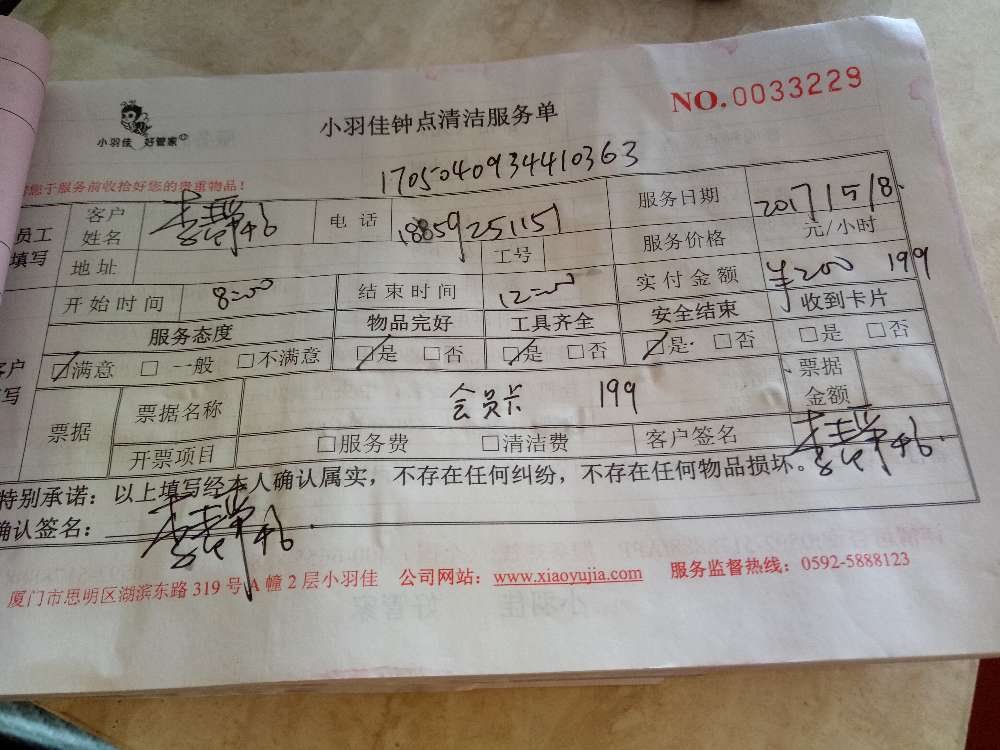 NO.0033229
小羽佳 好管家
小羽佳钟点清洁服务单
您于服务前收拾好您的贵重物品！
1705040934410363
员工填写 客户姓名 电话 18859251151 服务日期 2017/5/8.
地址 工号 服务价格 元/小时
开始时间 8=00 结束时间 12=00 实付金额 ¥200 199
服务态度 物品完好 工具齐全 安全结束 收到卡片
☑满意 □一般 □不满意 ☑是 □否 ☑是 □否 ☑是 □否 □是 □否
票据 票据名称 会员卡 199 票据金额
开票项目 □服务费 □清洁费 客户签名
特别承诺：以上填写经本人确认属实，不存在任何纠纷，不存在任何物品损坏。
确认签名：
厦门市思明区湖滨东路 319 号 A 幢 2 层小羽佳 公司网站：www.xiaoyujia.com 服务监督热线：0592-5888123